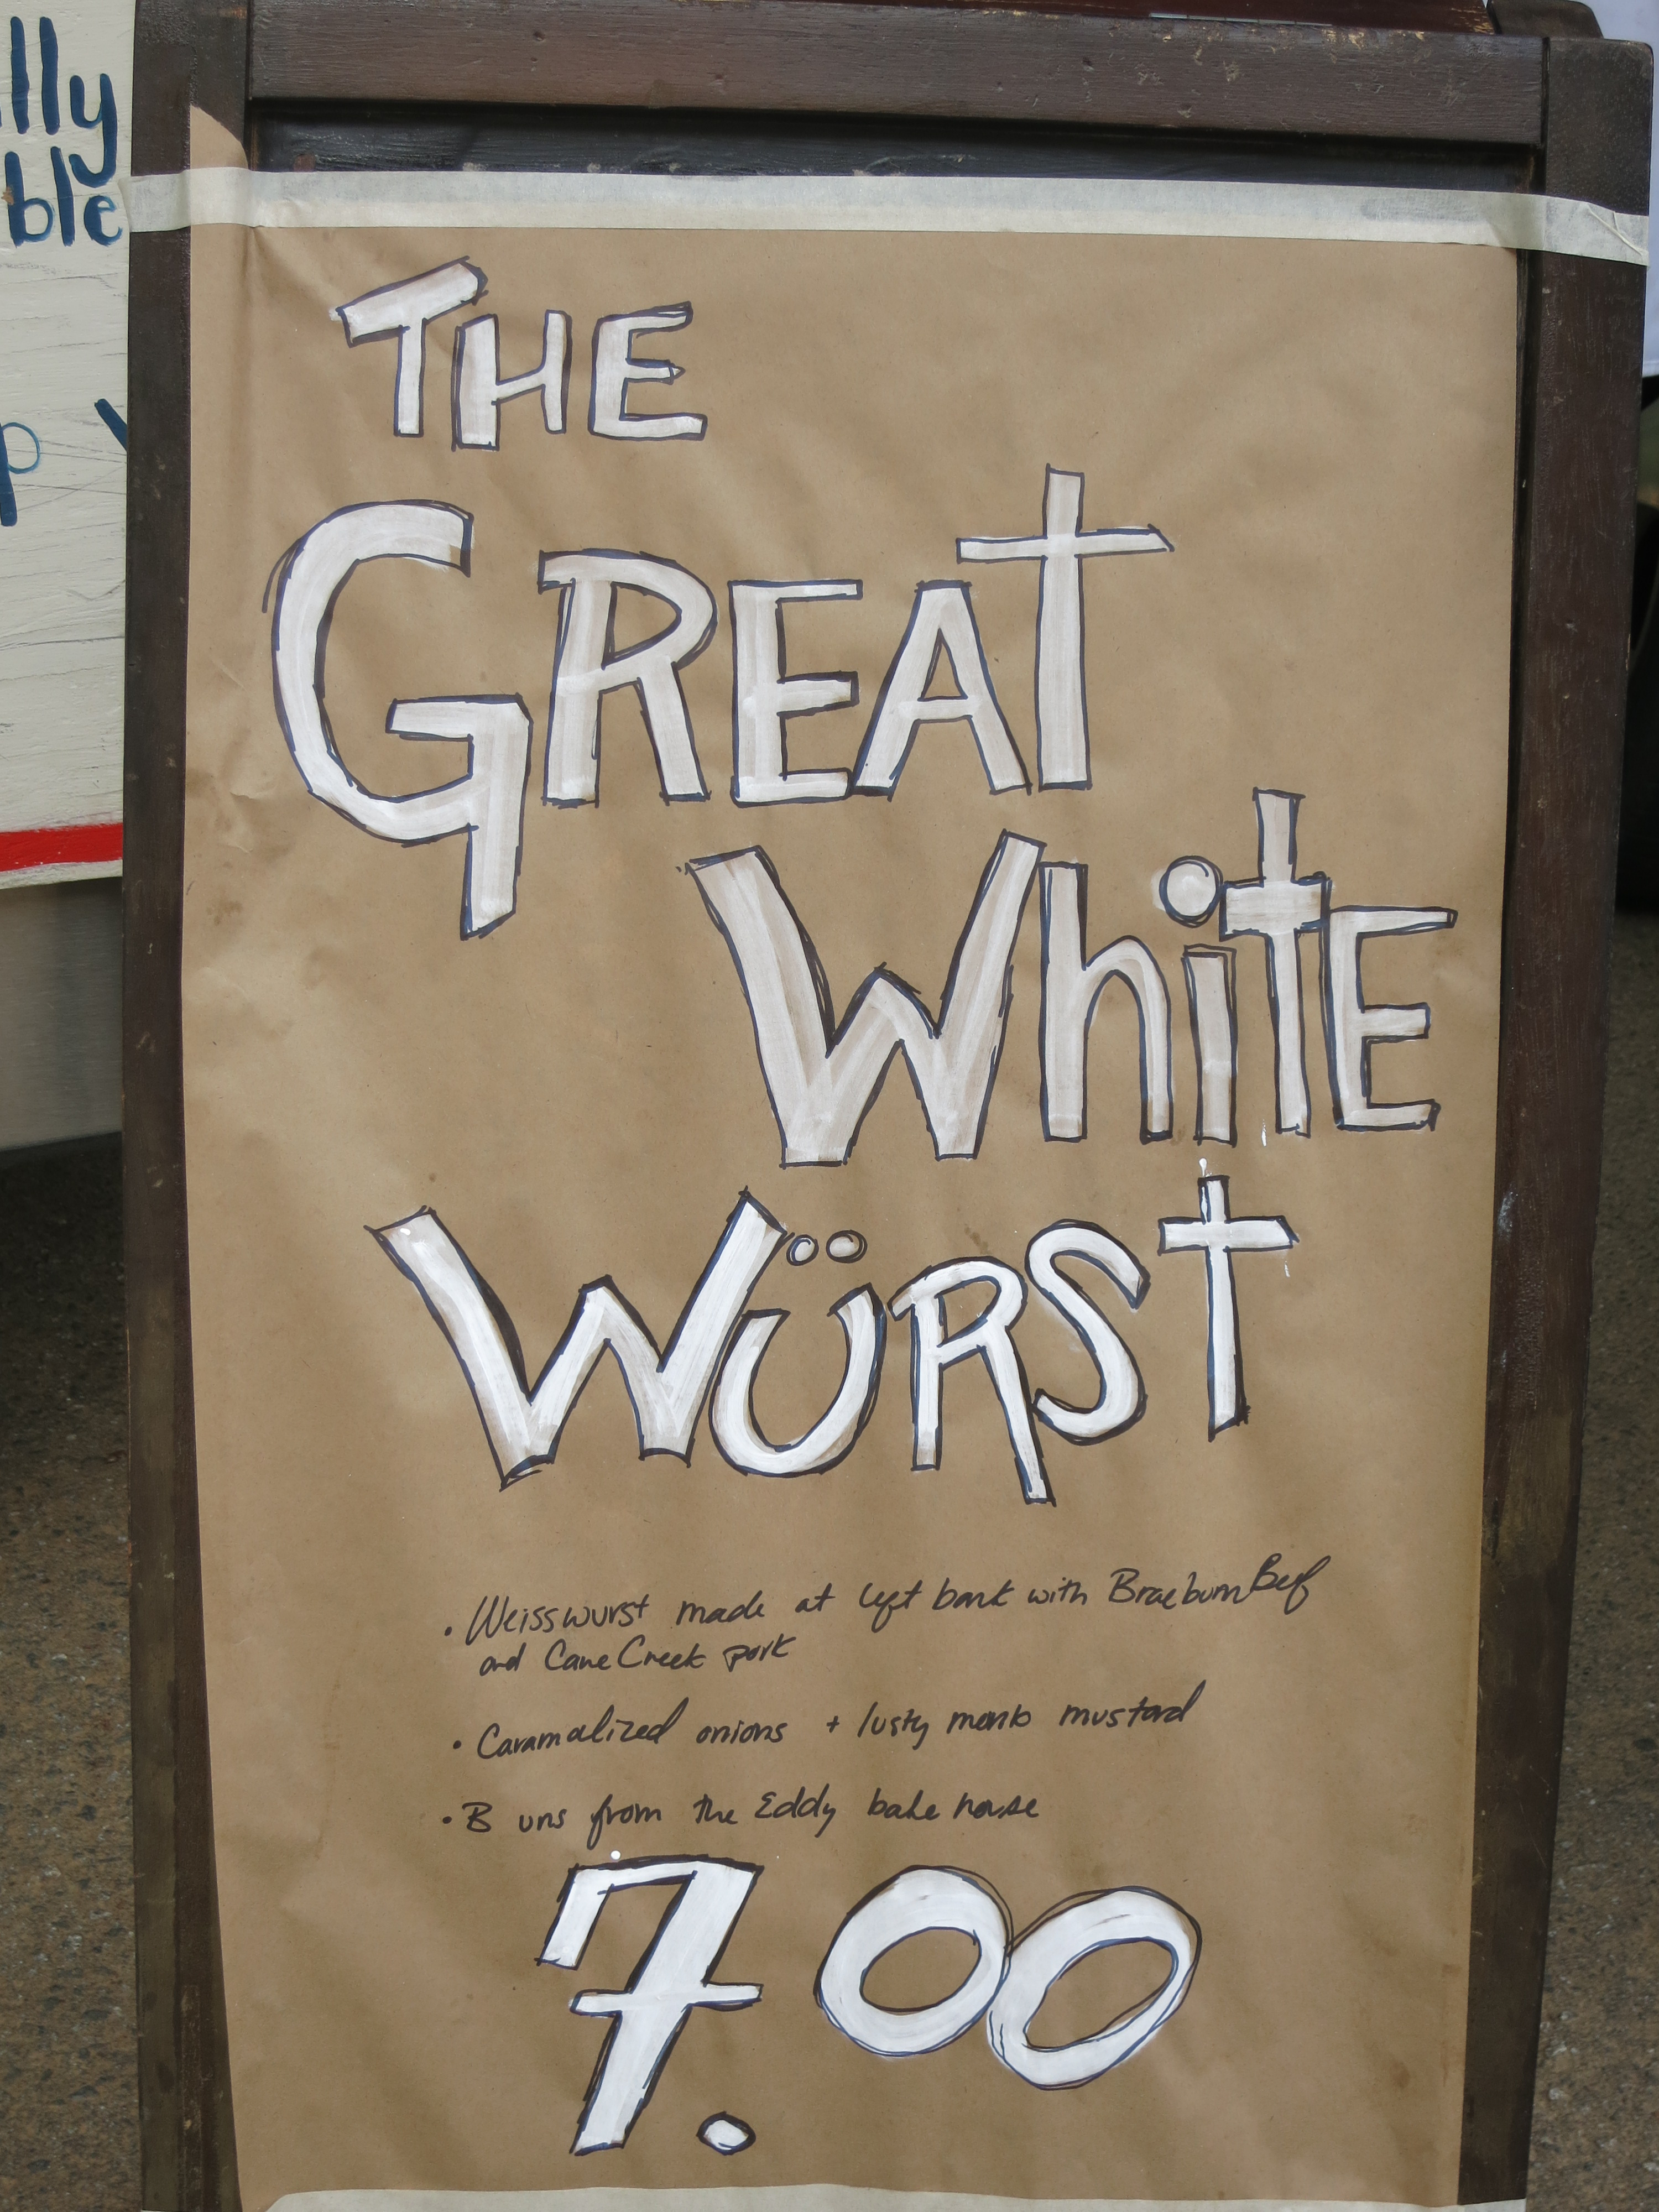 lly
ble
p
THE
GREAt
WhitE
WÜRSt
• Weisswurst made at left bank with Braeburn Beef
and Cane Creek pork
• Caramalized onions + lusty monk mustard
• Buns from the Eddy bake house
7.00